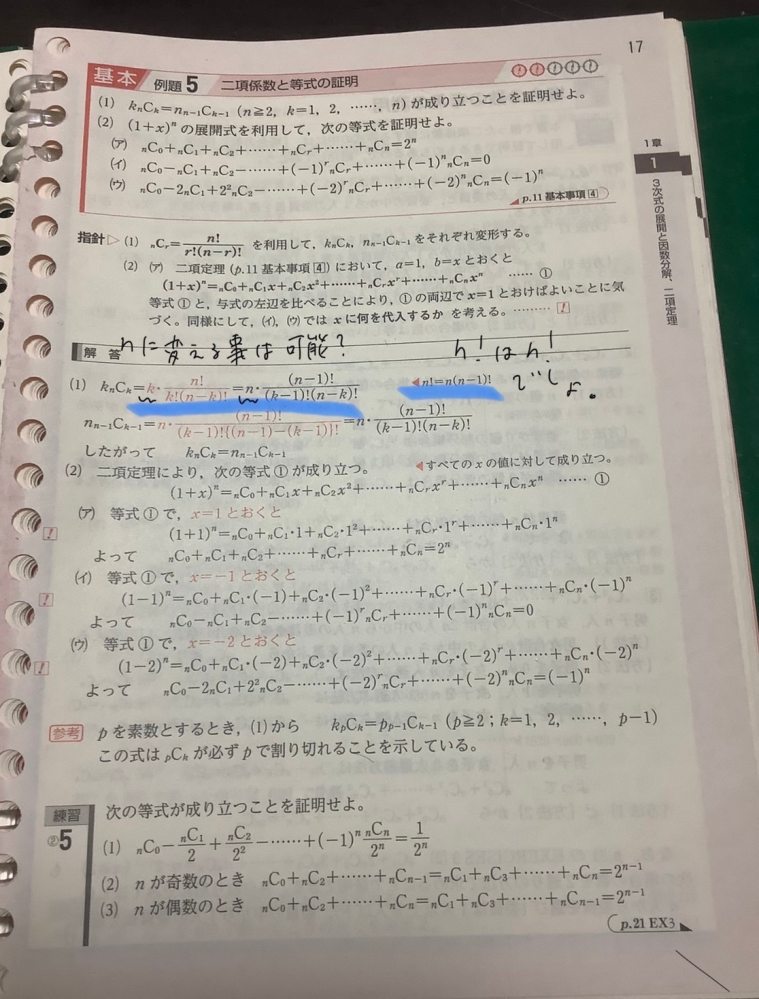 17
基本 例題5 二項係数と等式の証明
(1) knCk=nn-1Ck-1 (n≧2, k=1, 2, ……, n) が成り立つことを証明せよ。
(2) (1+x)^n の展開式を利用して，次の等式を証明せよ。
(ア) nC0+nC1+nC2+……+nCr+……+nCn=2^n
(イ) nC0-nC1+nC2-……+(-1)^r nCr+……+(-1)^n nCn=0
(ウ) nC0-2nC1+2^2 nC2-……+(-2)^r nCr+……+(-2)^n nCn=(-1)^n
p.11 基本事項 4
1章
1
3次式の展開と因数分解，二項定理
指針▷ (1) nCr=n!/r!(n-r)! を利用して，knCk, nn-1Ck-1 をそれぞれ変形する。
(2) (ア) 二項定理 (p.11 基本事項 4) において，a=1, b=x とおくと
(1+x)^n=nC0+nC1x+nC2x^2+……+nCrx^r+……+nCnx^n …… ①
等式①と，与式の左辺を比べることにより，①の両辺で x=1 とおけばよいことに気
づく。同様にして，(イ)，(ウ)では x に何を代入するか を考える。……… !
nに変える事は可能？ n!はn!
解答
(1) knCk=k・n!/k!(n-k)!=n・(n-1)!/(k-1)!(n-k)! ◀n!=n(n-1)! でしょ。
nn-1Ck-1=n・(n-1)!/(k-1)!{(n-1)-(k-1)}!=n・(n-1)!/(k-1)!(n-k)!
したがって knCk=nn-1Ck-1
(2) 二項定理により，次の等式①が成り立つ。 ◀すべての x の値に対して成り立つ。
(1+x)^n=nC0+nC1x+nC2x^2+……+nCrx^r+……+nCnx^n …… ①
(ア) 等式①で，x=1 とおくと
! (1+1)^n=nC0+nC1・1+nC2・1^2+……+nCr・1^r+……+nCn・1^n
よって nC0+nC1+nC2+……+nCr+……+nCn=2^n
(イ) 等式①で，x=-1 とおくと
! (1-1)^n=nC0+nC1・(-1)+nC2・(-1)^2+……+nCr・(-1)^r+……+nCn・(-1)^n
よって nC0-nC1+nC2-……+(-1)^r nCr+……+(-1)^n nCn=0
(ウ) 等式①で，x=-2 とおくと
! (1-2)^n=nC0+nC1・(-2)+nC2・(-2)^2+……+nCr・(-2)^r+……+nCn・(-2)^n
よって nC0-2nC1+2^2 nC2-……+(-2)^r nCr+……+(-2)^n nCn=(-1)^n
参考 p を素数とするとき，(1)から kpCk=pp-1Ck-1 (p≧2 ; k=1, 2, ……, p-1)
この式は pCk が必ず p で割り切れることを示している。
練習 ②5 次の等式が成り立つことを証明せよ。
(1) nC0-nC1/2+nC2/2^2-……+(-1)^n nCn/2^n=1/2^n
(2) n が奇数のとき nC0+nC2+……+nCn-1=nC1+nC3+……+nCn=2^(n-1)
(3) n が偶数のとき nC0+nC2+……+nCn=nC1+nC3+……+nCn-1=2^(n-1)
p.21 EX3